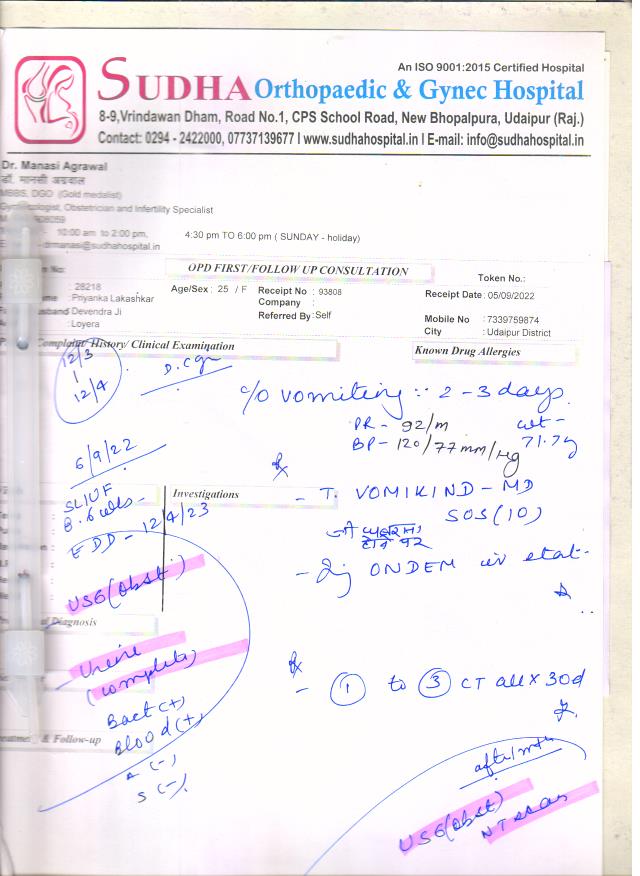 An ISO 9001:2015 Certified Hospital
SUDHA Orthopaedic & Gynec Hospital
8-9,Vrindawan Dham, Road No.1, CPS School Road, New Bhopalpura, Udaipur (Raj.)
Contact: 0294 - 2422000, 07737139677 I www.sudhahospital.in I E-mail: info@sudhahospital.in
Dr. Manasi Agrawal
डॉ. मानसी अग्रवाल
MBBS, DGO (Gold medalist)
Obstetrician and Infertility Specialist
10:00 am to 2:00 pm, 4:30 pm TO 6:00 pm ( SUNDAY - holiday)
drmanasi@sudhahospital.in
OPD FIRST/FOLLOW UP CONSULTATION
Token No.:
: 28218 Age/Sex : 25 / F Receipt No : 93808 Receipt Date: 05/09/2022
: Priyanka Lakashkar Company :
Devendra Ji Referred By : Self Mobile No : 7339759874
: Loyera City : Udaipur District
Complaint/ History/ Clinical Examination Known Drug Allergies
12/3
12/4
c/o vomiting :: 2 - 3 days
PR - 92/m wt -
BP - 120/77 mm/Hg 71.7
6/9/22
Rx
SLIUF
EDD - 12/4/23
Investigations
- T. VOMIKIND - MD
SOS (10)
होने पर
- Inj ONDEM iv stat.
USG (obst)
Diagnosis
Urine
(complete)
Bact (+)
Blood (+)
A (-)
S (-)
Rx
- 1 to 3 CT all x 30d
& Follow-up
after 1 mth
USG (obst)
NT scan